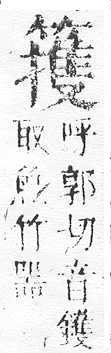 呼郭切音鑊
取魚竹器